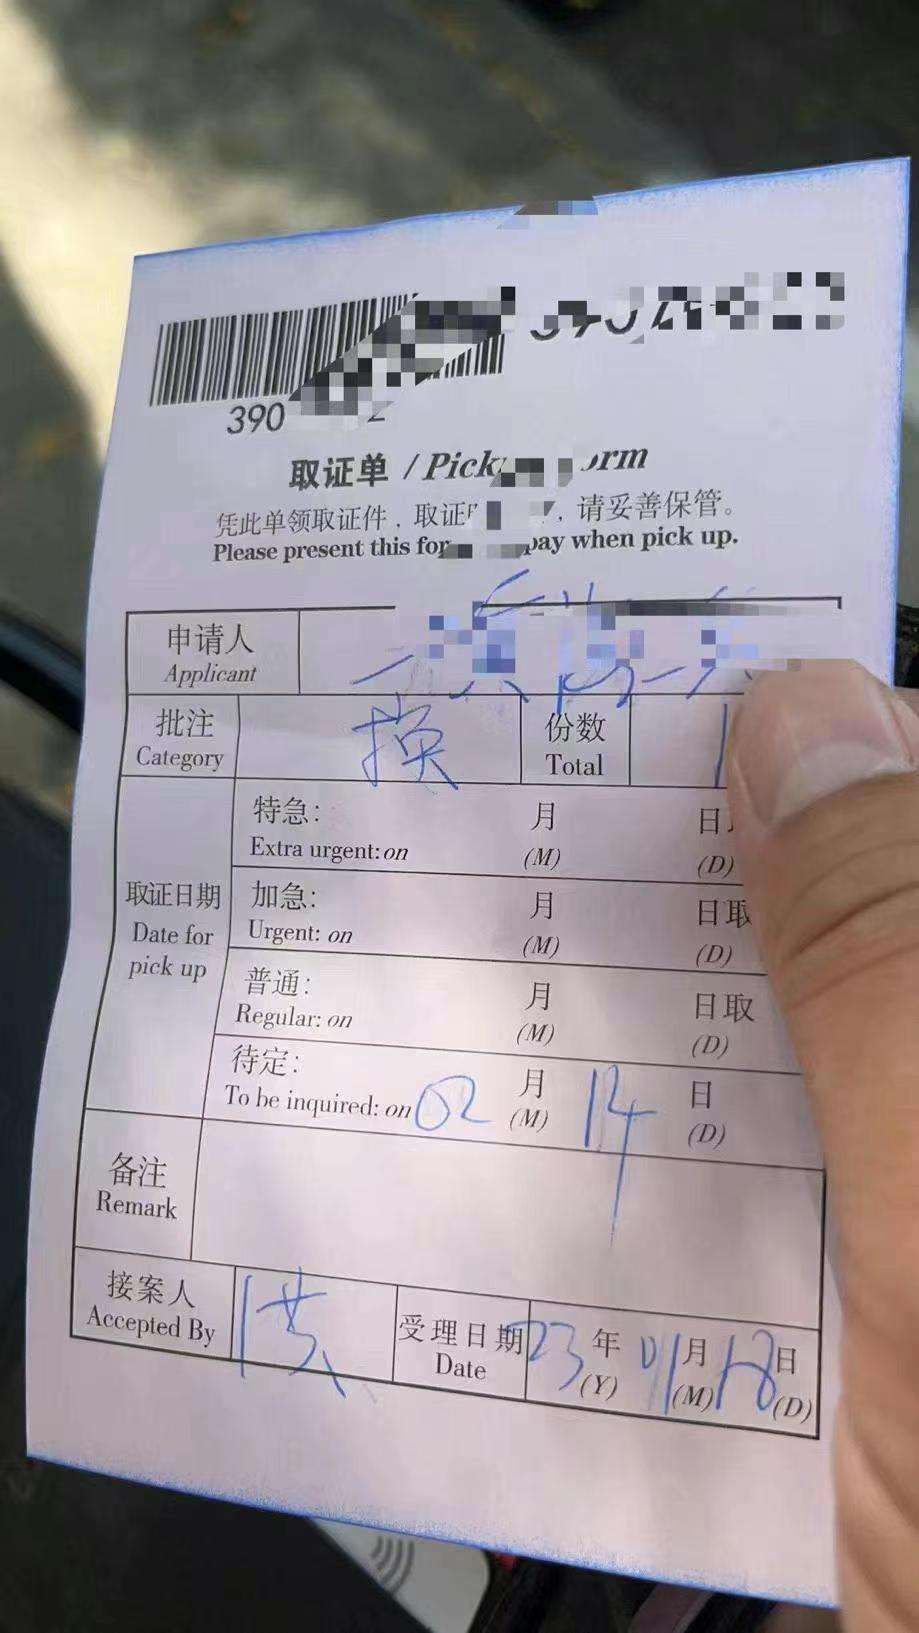 390
取证单 / Pick orm
凭此单领取证件，取证 ，请妥善保管。
Please present this for pay when pick up.
申请人
Applicant
批注 换 份数 1
Category Total
取证日期
Date for
pick up
特急： 月 日
Extra urgent: on (M) (D)
加急： 月 日取
Urgent: on (M) (D)
普通： 月 日取
Regular: on (M) (D)
待定： 02 月 14 日
To be inquired: on (M) (D)
备注
Remark
接案人 洪 受理日期 23 年 01 月 18 日
Accepted By Date (Y) (M) (D)